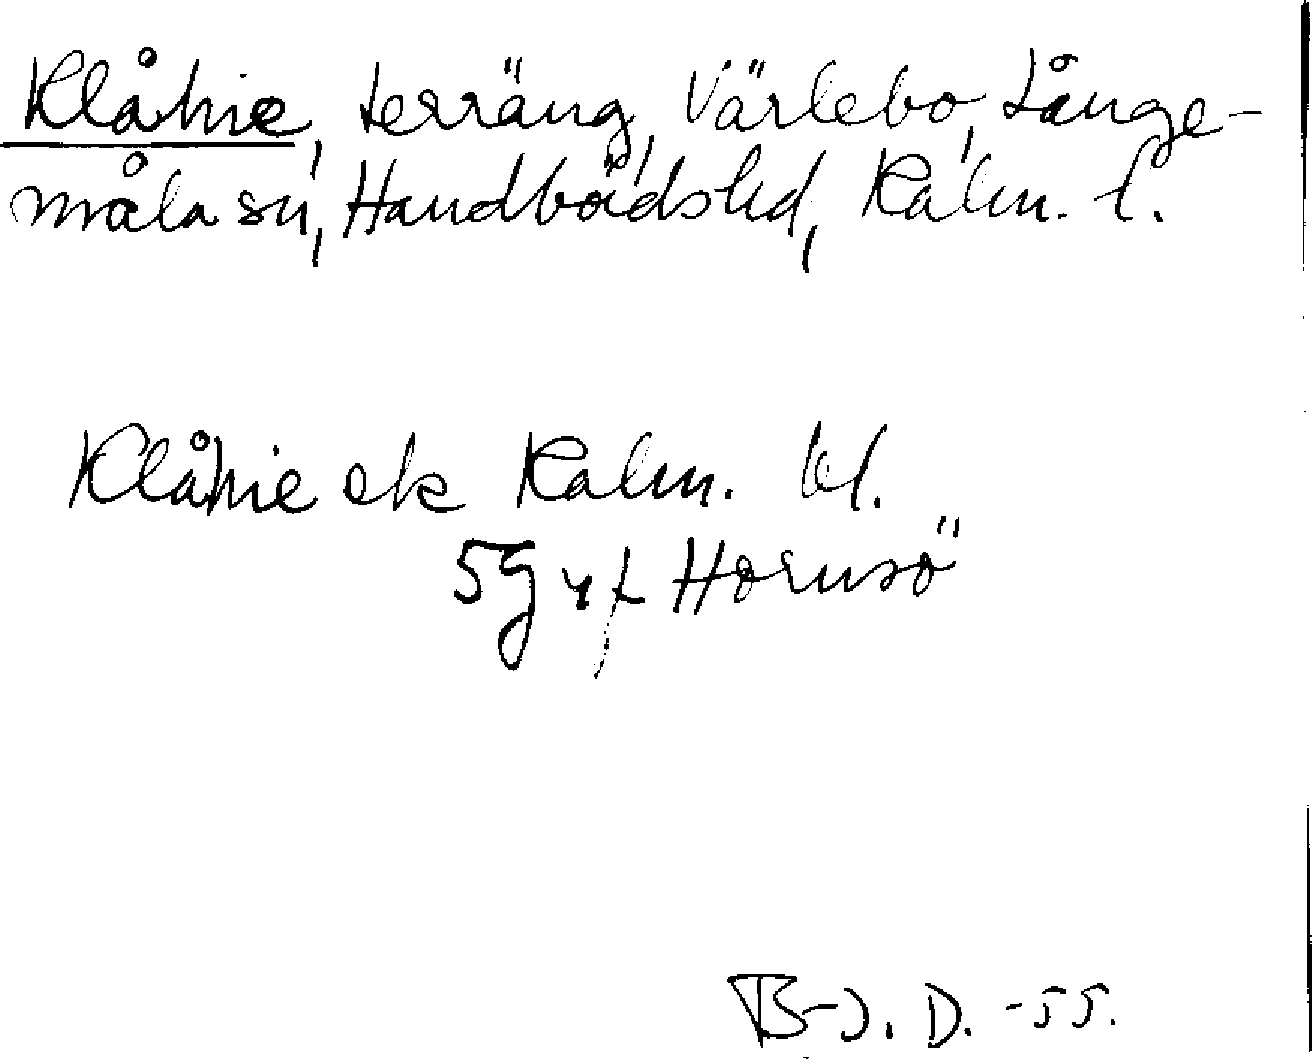 Klåhie, terräng, Värlebo, Långe-
måla sn, Handbörds hd, Kalm. l.
Klåhie ek Kalm. bl.
5g Hornsö
B-J. D. -55.